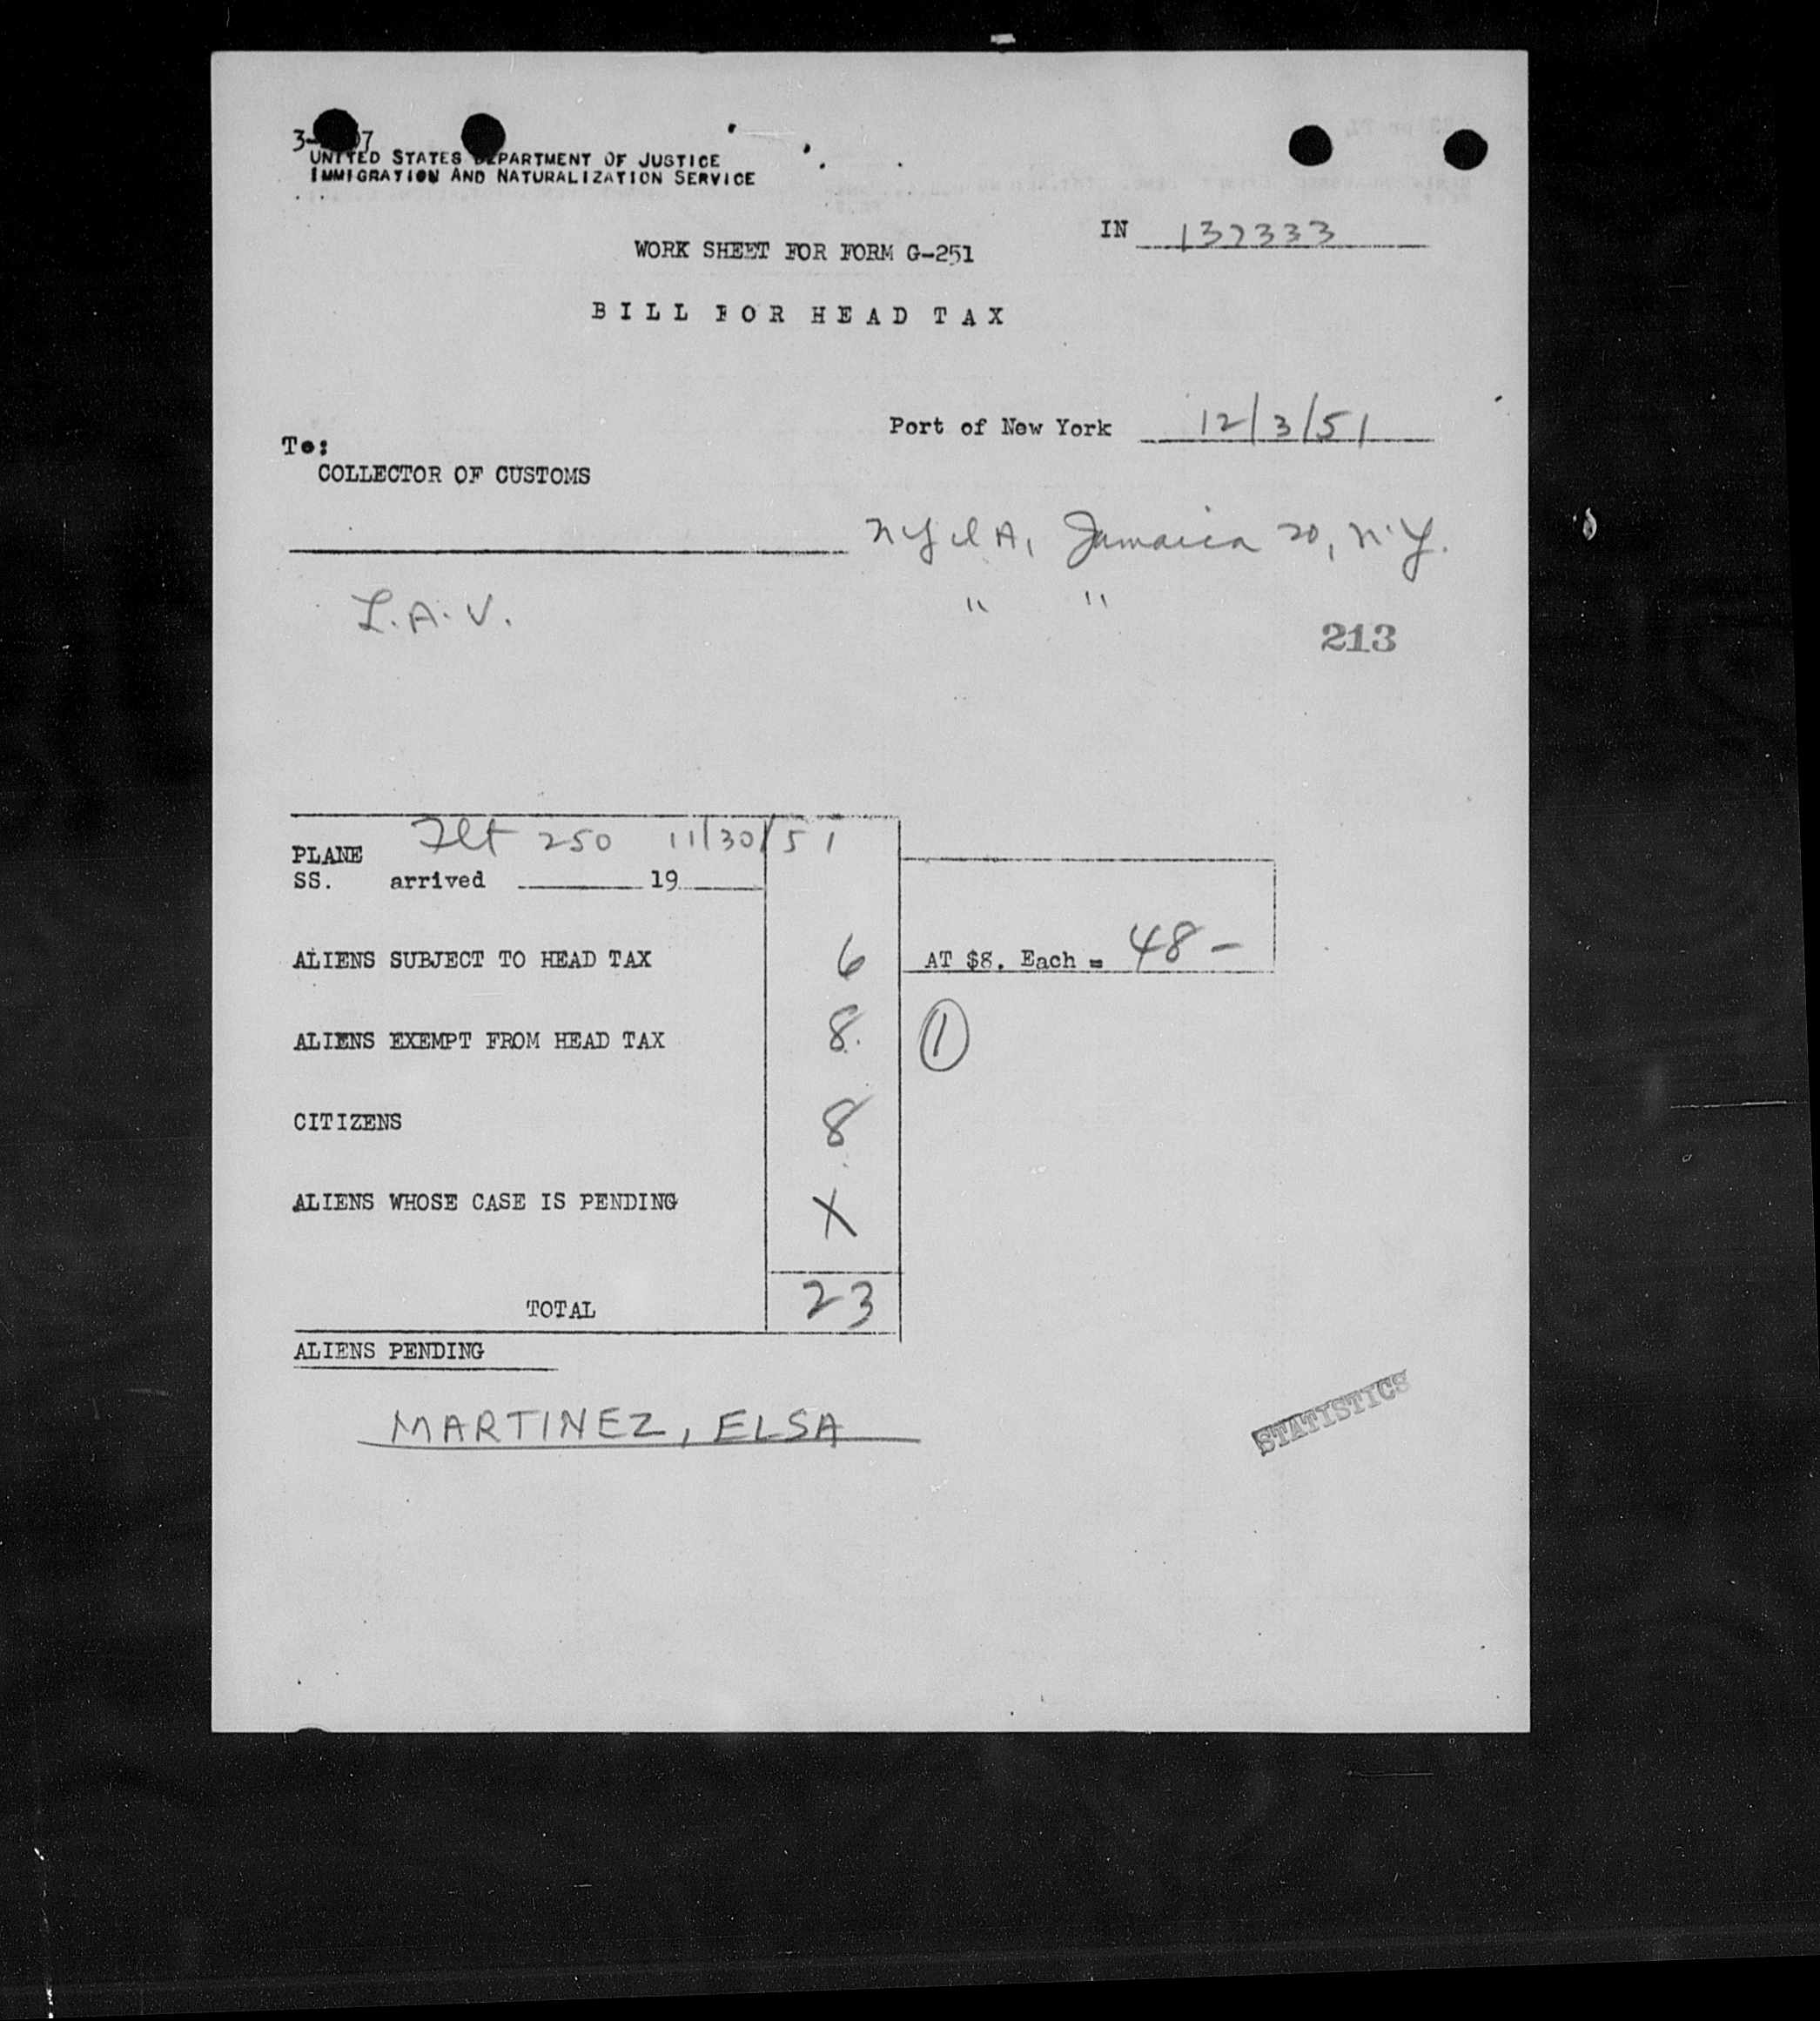 UNITED STATES DEPARTMENT OF JUSTICE
IMMIGRATION AND NATURALIZATION SERVICE
IN 137333
WORK SHEET FOR FORM G-251
BILL FOR HEAD TAX
Port of New York 12/3/51
To:
COLLECTOR OF CUSTOMS
Jamaica 20, N.Y.
L.A.V. " "
213
Flt 250 11/30/51
PLANE
SS. arrived 19
ALIENS SUBJECT TO HEAD TAX 6 AT $8. Each = 48-
ALIENS EXEMPT FROM HEAD TAX 8. 1
CITIZENS 8
ALIENS WHOSE CASE IS PENDING X
TOTAL 23
ALIENS PENDING
MARTINEZ, ELSA
STATISTICS